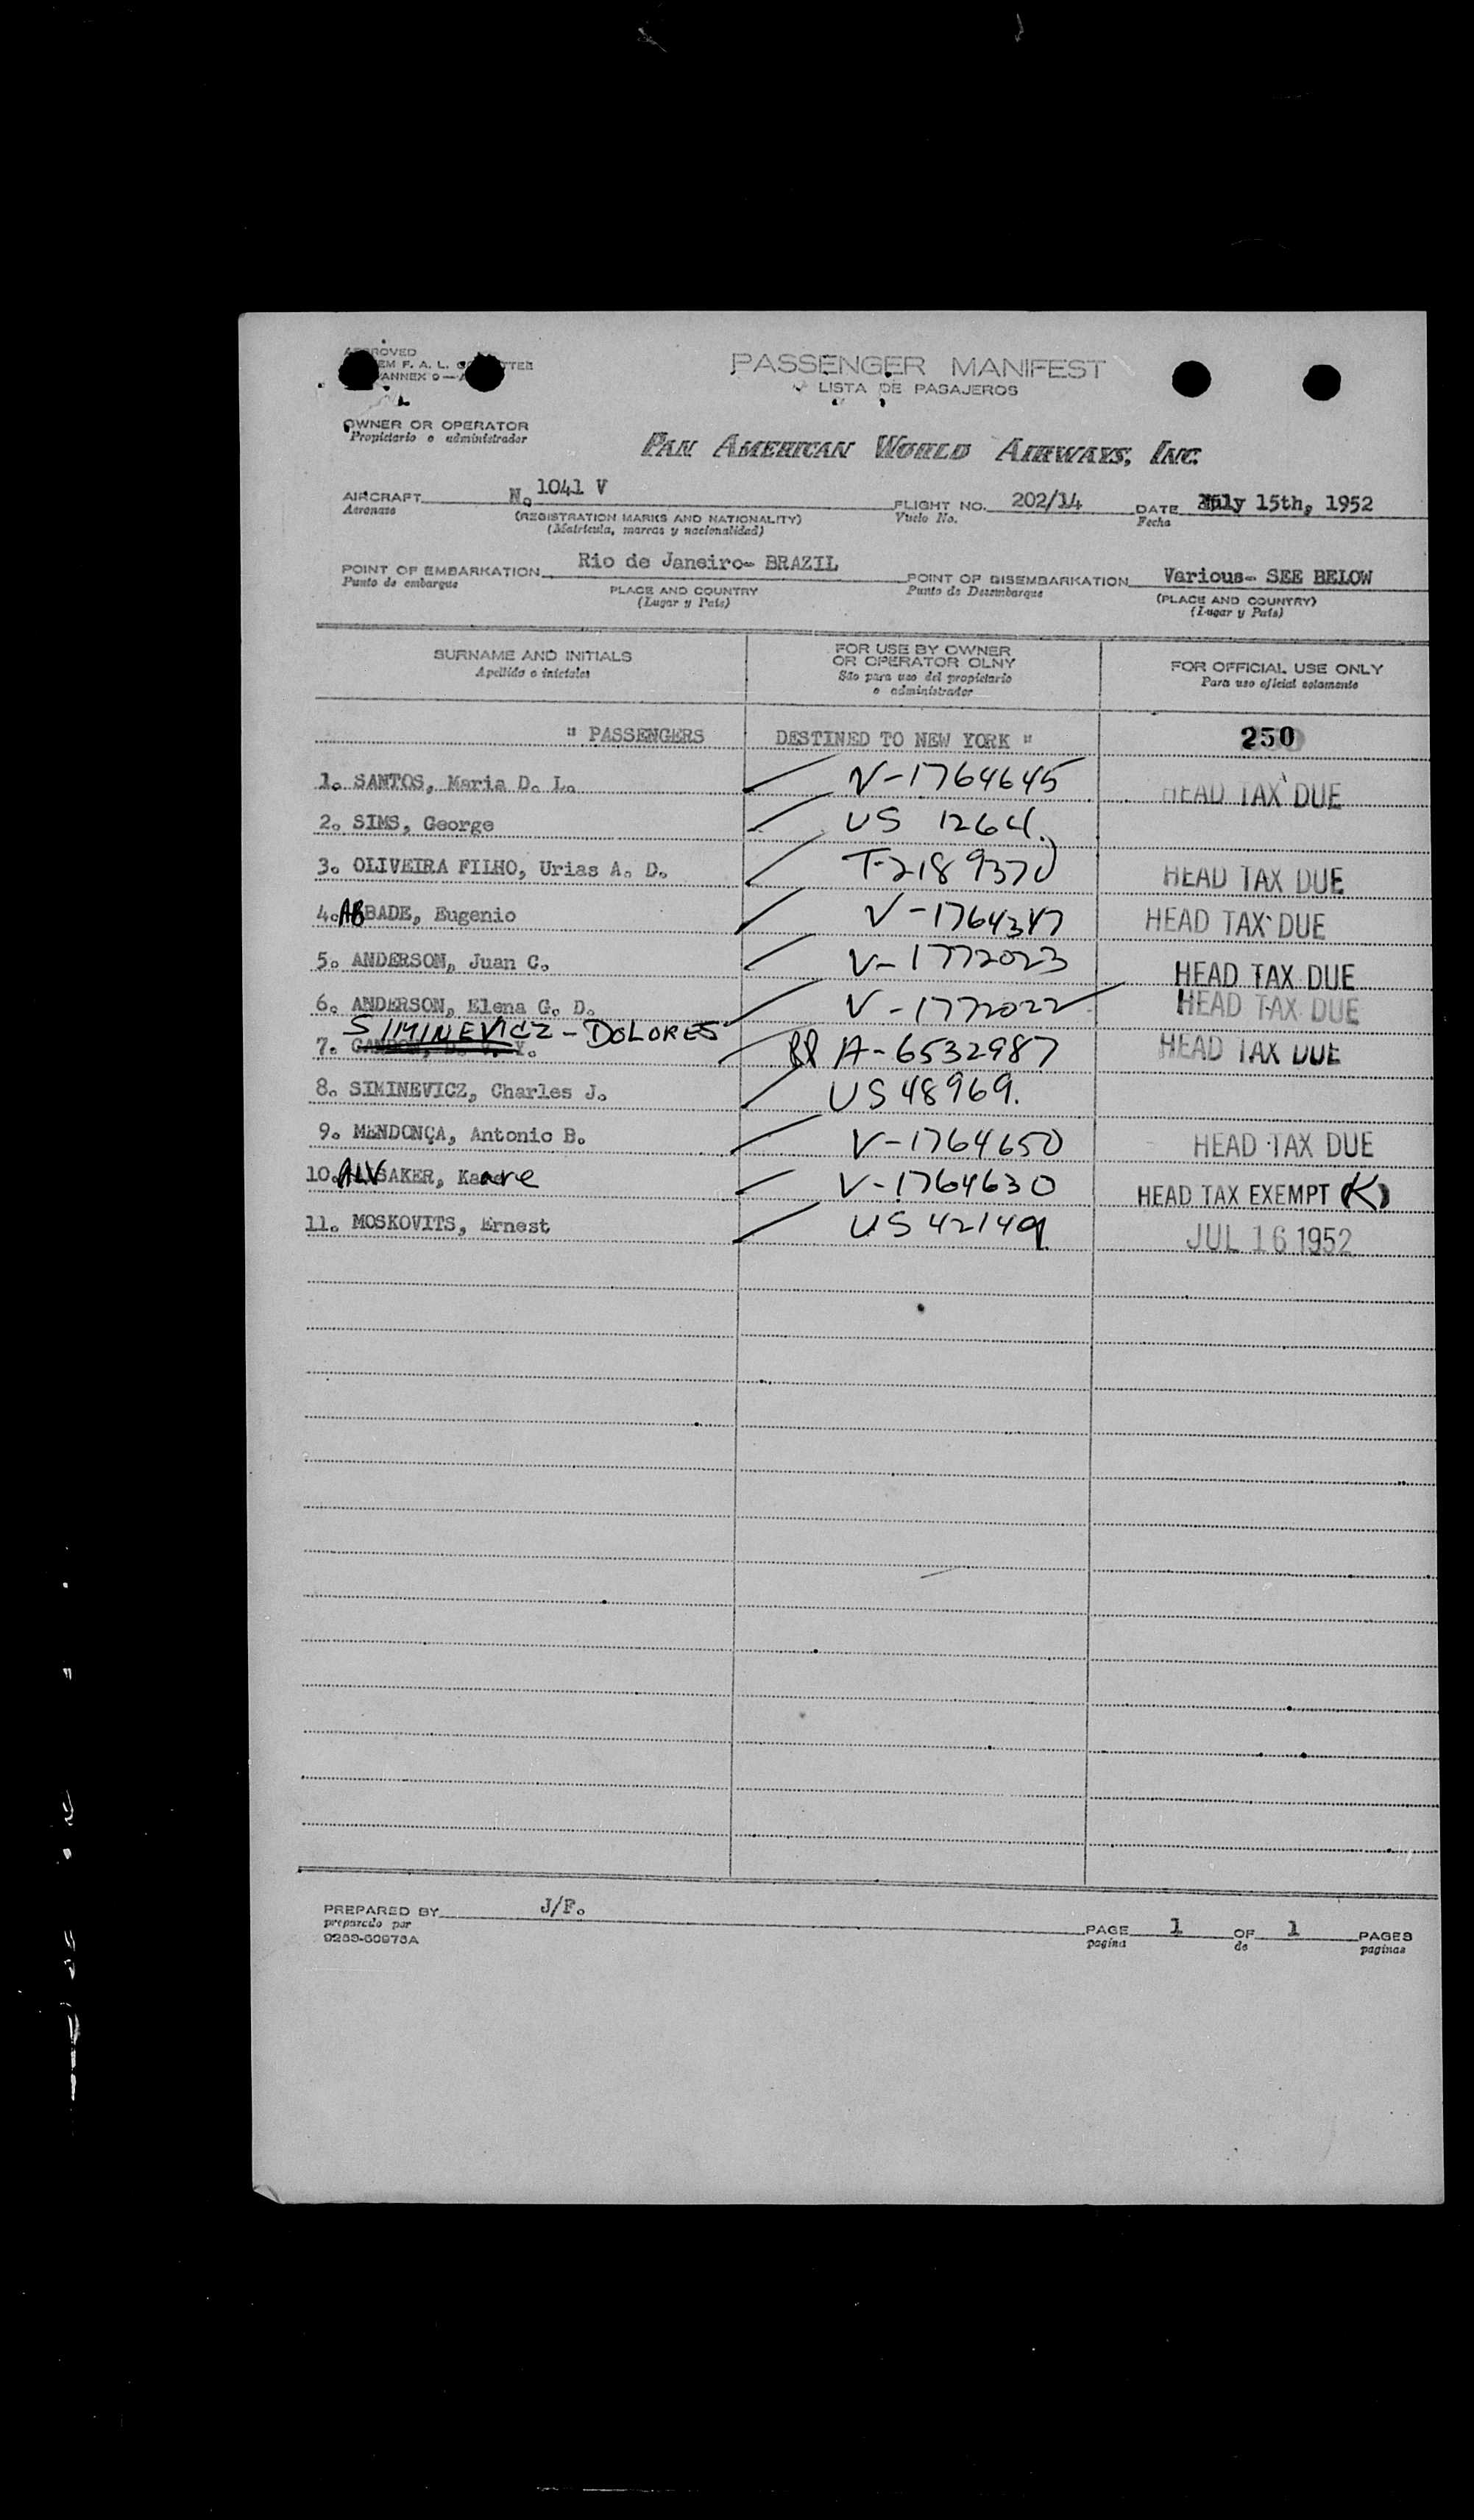 APPROVED
PASSENGER MANIFEST
F. A. L.
ANNEX 9
LISTA DE PASAJEROS
OWNER OR OPERATOR
Propietario o administrador
PAN AMERICAN WORLD AIRWAYS, INC.
AIRCRAFT N. 1041 V FLIGHT NO. 202/14 DATE July 15th, 1952
Aeronave (REGISTRATION MARKS AND NATIONALITY) Vuelo No. Fecha
(Matrícula, marcas y nacionalidad)
POINT OF EMBARKATION Rio de Janeiro- BRAZIL POINT OF DISEMBARKATION Various- SEE BELOW
Punto de embarque PLACE AND COUNTRY Punto de Desembarque (PLACE AND COUNTRY)
(Lugar y País) (Lugar y País)
SURNAME AND INITIALS FOR USE BY OWNER OR OPERATOR OLNY FOR OFFICIAL USE ONLY
Apellido o iniciales São para uso del propietario o administrador Para uso oficial solamente
" PASSENGERS DESTINED TO NEW YORK " 250
1. SANTOS, Maria D. L. V-1764645 HEAD TAX DUE
2. SIMS, George US 1264.
3. OLIVEIRA FILHO, Urias A. D. T-2189370 HEAD TAX DUE
4. ABBADE, Eugenio V-1764347 HEAD TAX DUE
5. ANDERSON, Juan C. V-1772023 HEAD TAX DUE
6. ANDERSON, Elena G. D. V-1772022 HEAD TAX DUE
SIMINEVICZ - DOLORES
7. A-6532987 HEAD TAX DUE
8. SIMINEVICZ, Charles J. US 48969.
9. MENDONÇA, Antonio B. V-1764650 HEAD TAX DUE
10. ALVSAKER, Kaare V-1764630 HEAD TAX EXEMPT (K)
11. MOSKOVITS, Ernest US 42149 JUL 16 1952
PREPARED BY J/F. PAGE 1 OF 1 PAGES
preparado por pagina de paginas
9263-60975A